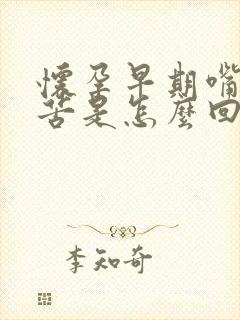 懷孕早期嘴
苦是怎麼回
李知奇